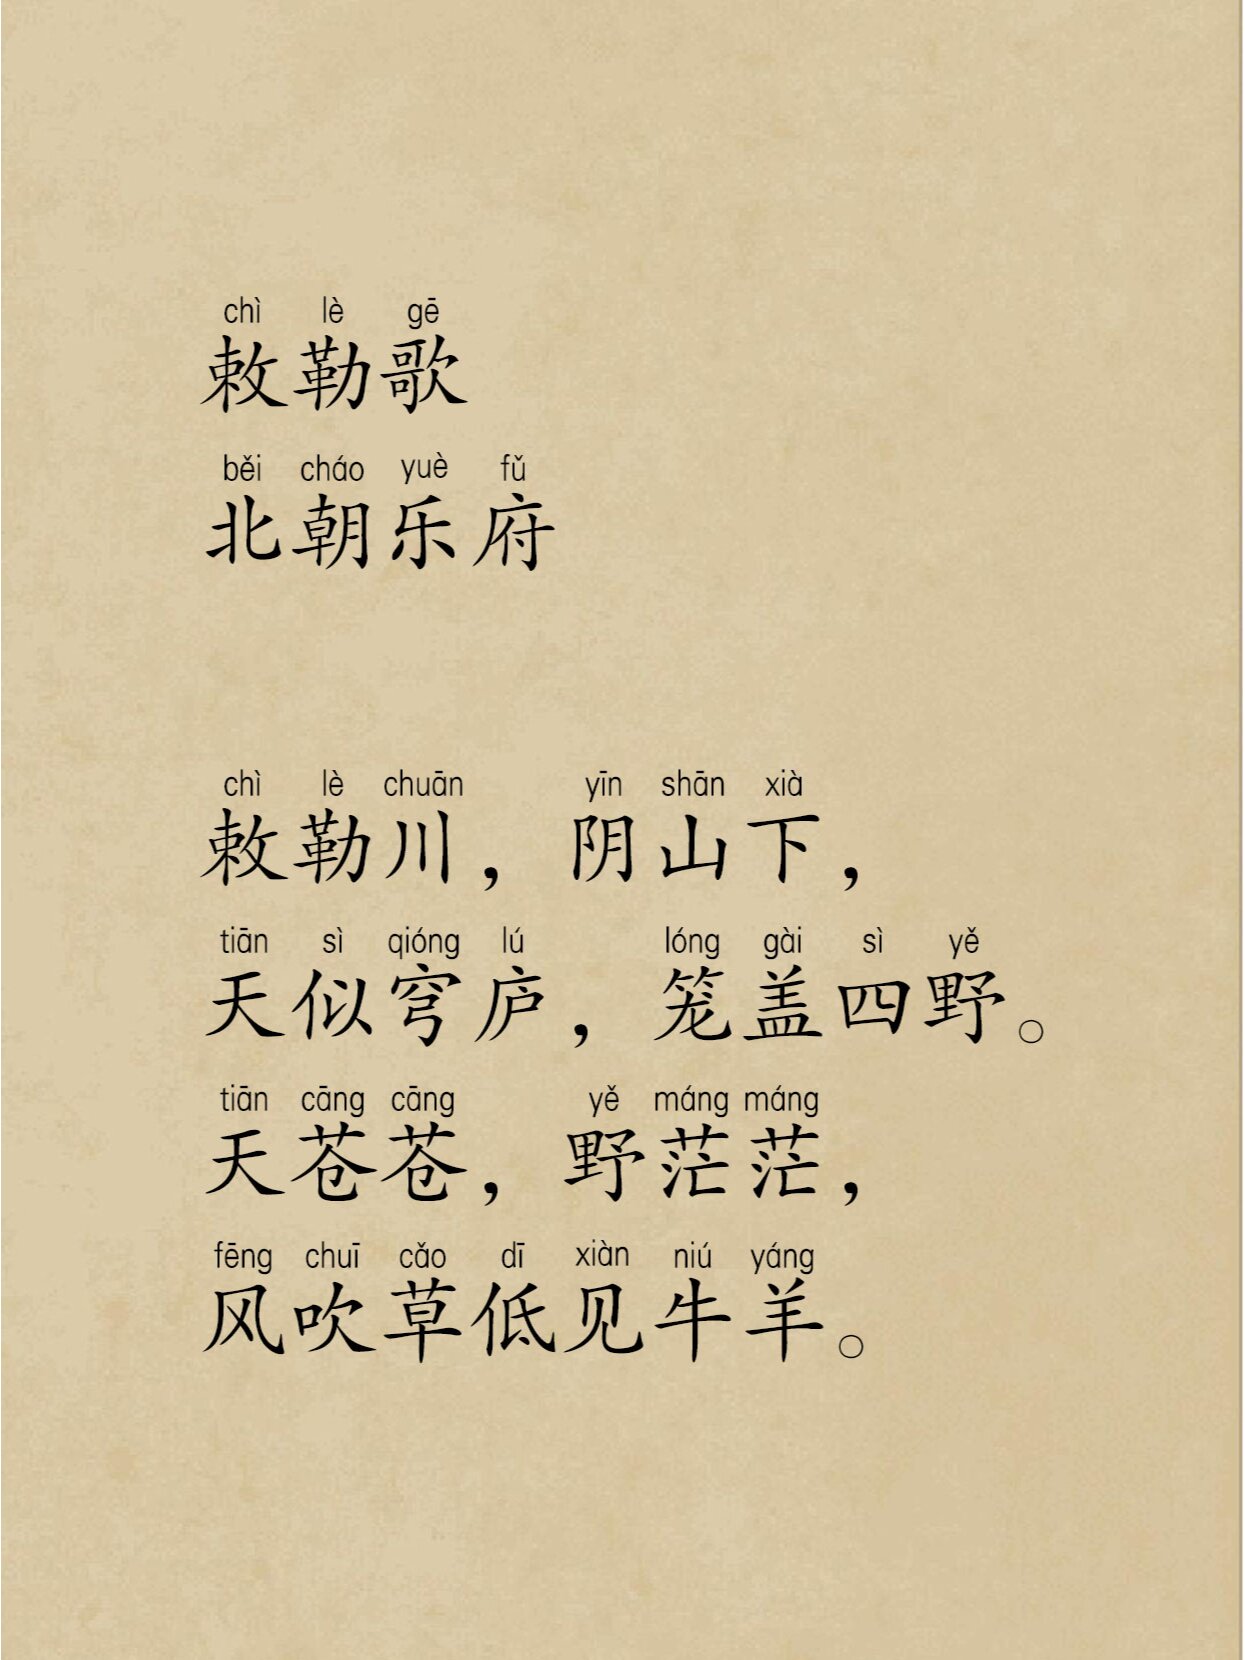 chì lè gē
敕勒歌
běi cháo yuè fǔ
北朝乐府
chì lè chuān yīn shān xià
敕勒川，阴山下，
tiān sì qióng lú lóng gài sì yě
天似穹庐，笼盖四野。
tiān cāng cāng yě máng máng
天苍苍，野茫茫，
fēng chuī cǎo dī xiàn niú yáng
风吹草低见牛羊。